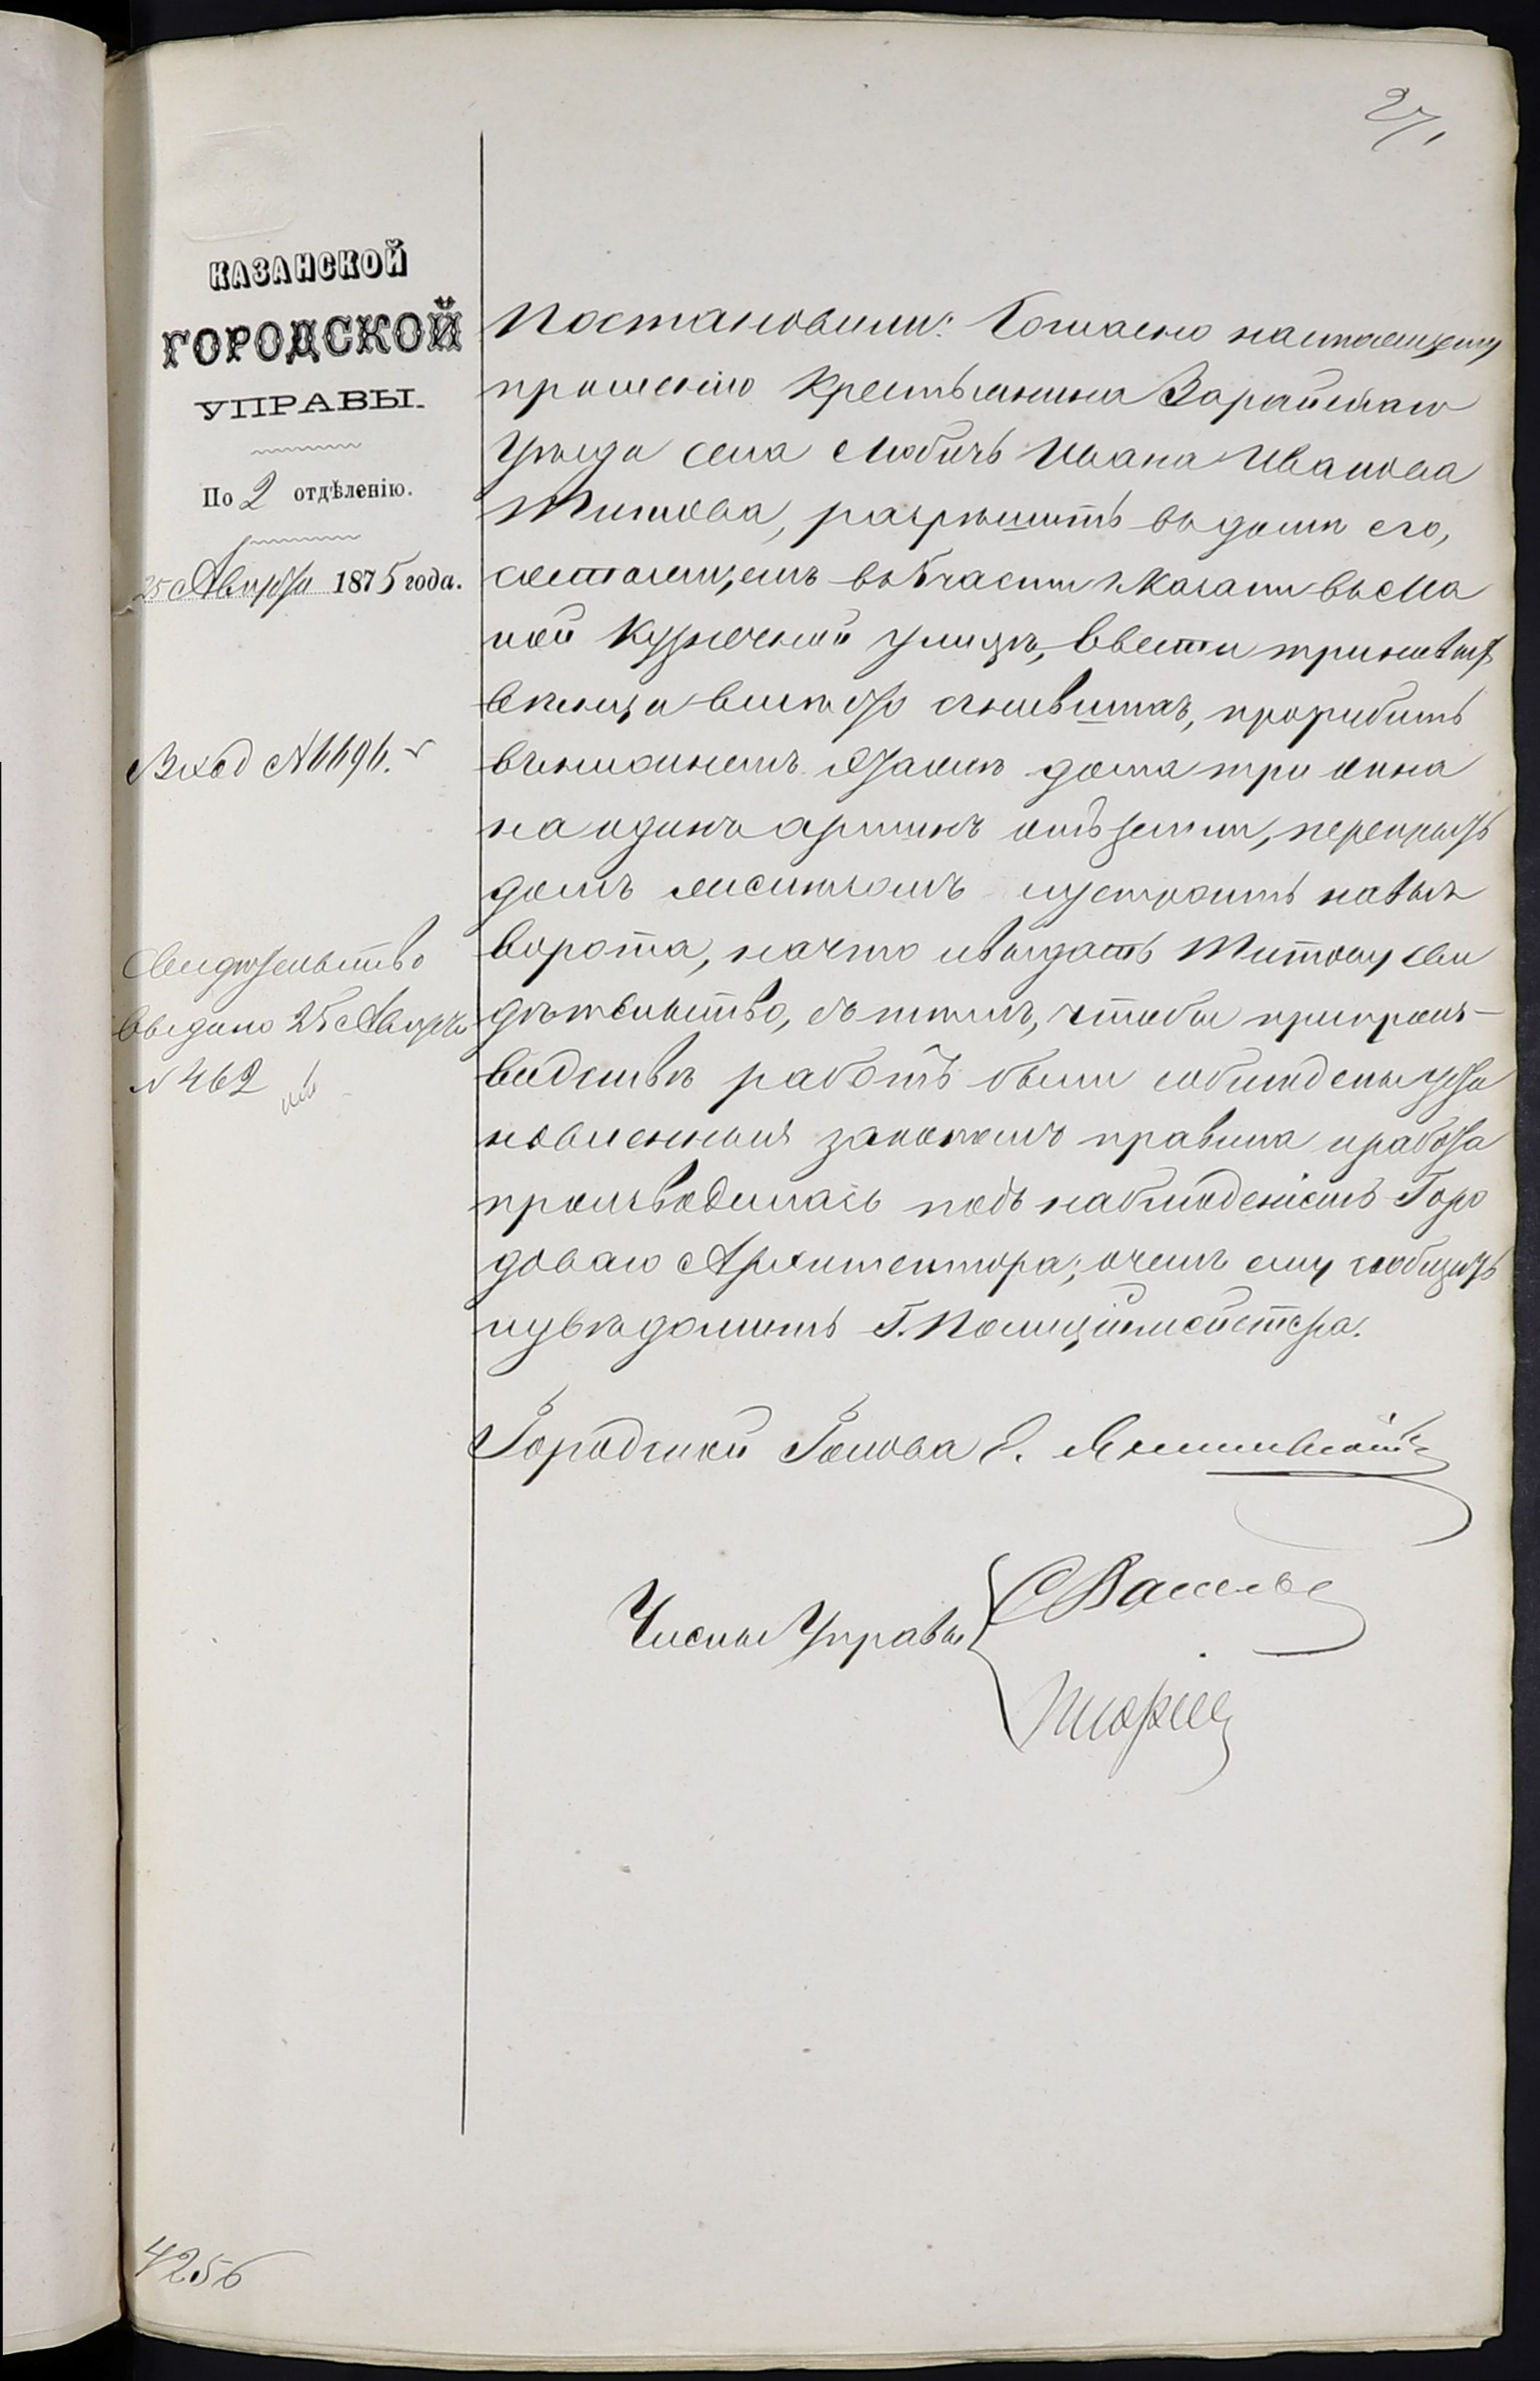 27
КАЗАНСКОЙ
ГОРОДСКОЙ
УПРАВЫ.
По 2 отдѣленію.
25 Августа 1875 года.
Вход № 6696.
Свидѣтельство
выдано 25 Августа
№ 462
4256
Постановили: Согласно настоящему
прошенію Крестьянина Зарайскаго
уѣзда села Любичъ Ивана Иванова
Титова, разрѣшить въ домѣ его,
состоящемъ въ 5 части г. Казани въ Ма
лой Кузнечной улицѣ, ввести три новые
вѣнца вмѣсто сгнившихъ, прорубить
въ нижнемъ этажѣ дома три окна
на одинъ аршинъ отъ земли, перекрыть
домъ лисстомъ и устроить новыя
ворота, на что и выдать Титову сви
дѣтельство, съ тѣмъ, чтобы при произ-
водствѣ работъ были соблюдены уста
новленныя закономъ правила и работа
производилась подъ наблюденіемъ Горо
доваго Архитектора; о чемъ ему сообщить
и увѣдомить Г. Полиціймейстера.
Городской Голова Э. Янишевскій
Члены Управы